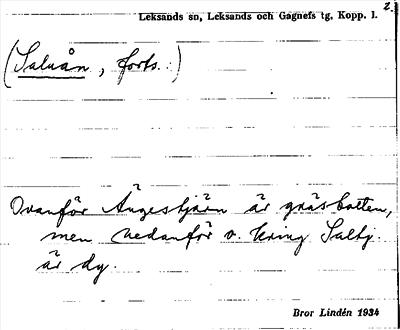 2.
Leksands sn, Leksands och Gagnefs tg, Kopp. l.
(Saluån, forts.)
Ovanför Ängestjärn är gräsbotten,
men nedanför o. kring Saltj.
är dy.
Bror Lindén 1934